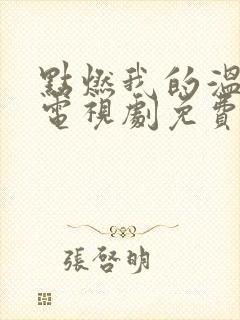 點燃我的溫
電視劇免費
張啓明